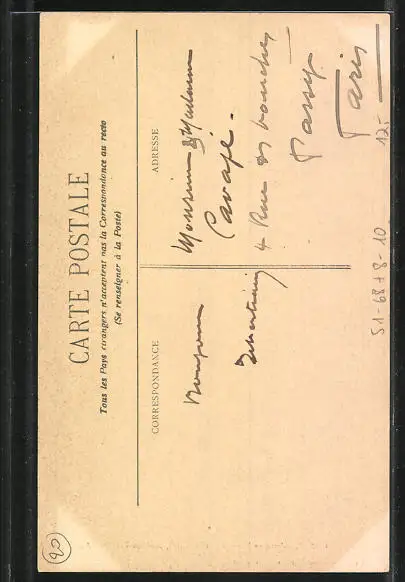 CARTE POSTALE
Tous les Pays étrangers n'acceptent pas la Correspondance au recto
(Se renseigner à la Poste)
CORRESPONDANCE
ADRESSE
Monsieur & Madame
Cavapé.
4 Rue des
Passy
Paris
12.-
S1-68+8-10
20